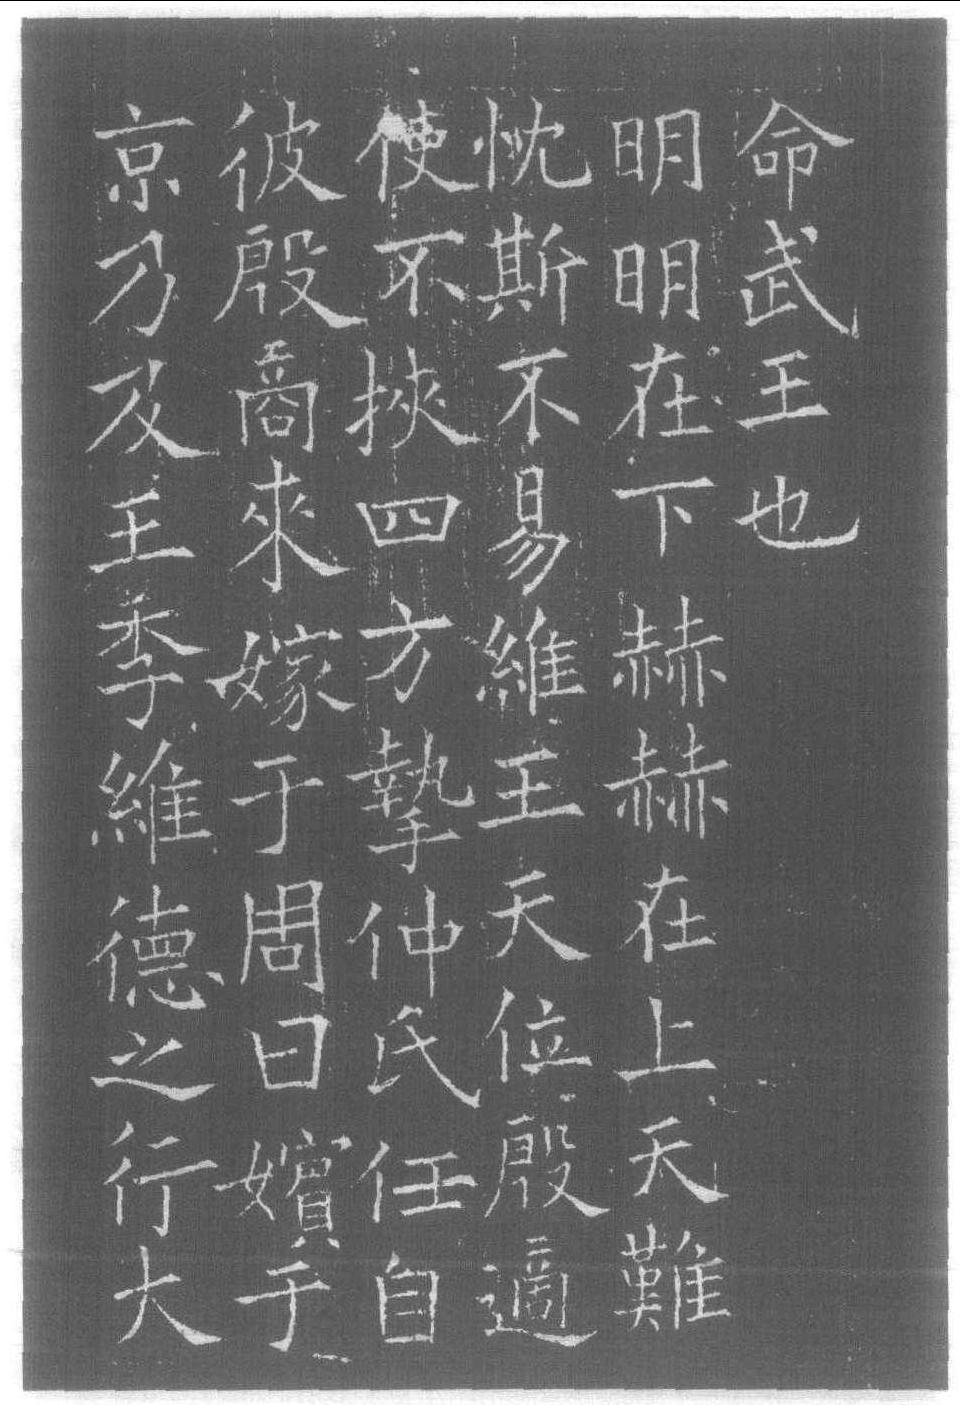 命武王也
明明在下赫赫在上天難
忱斯不易維王天位殷適
使不挾四方摯仲氏任自
彼殷商來嫁于周曰嬪于
京乃及王季維德之行大